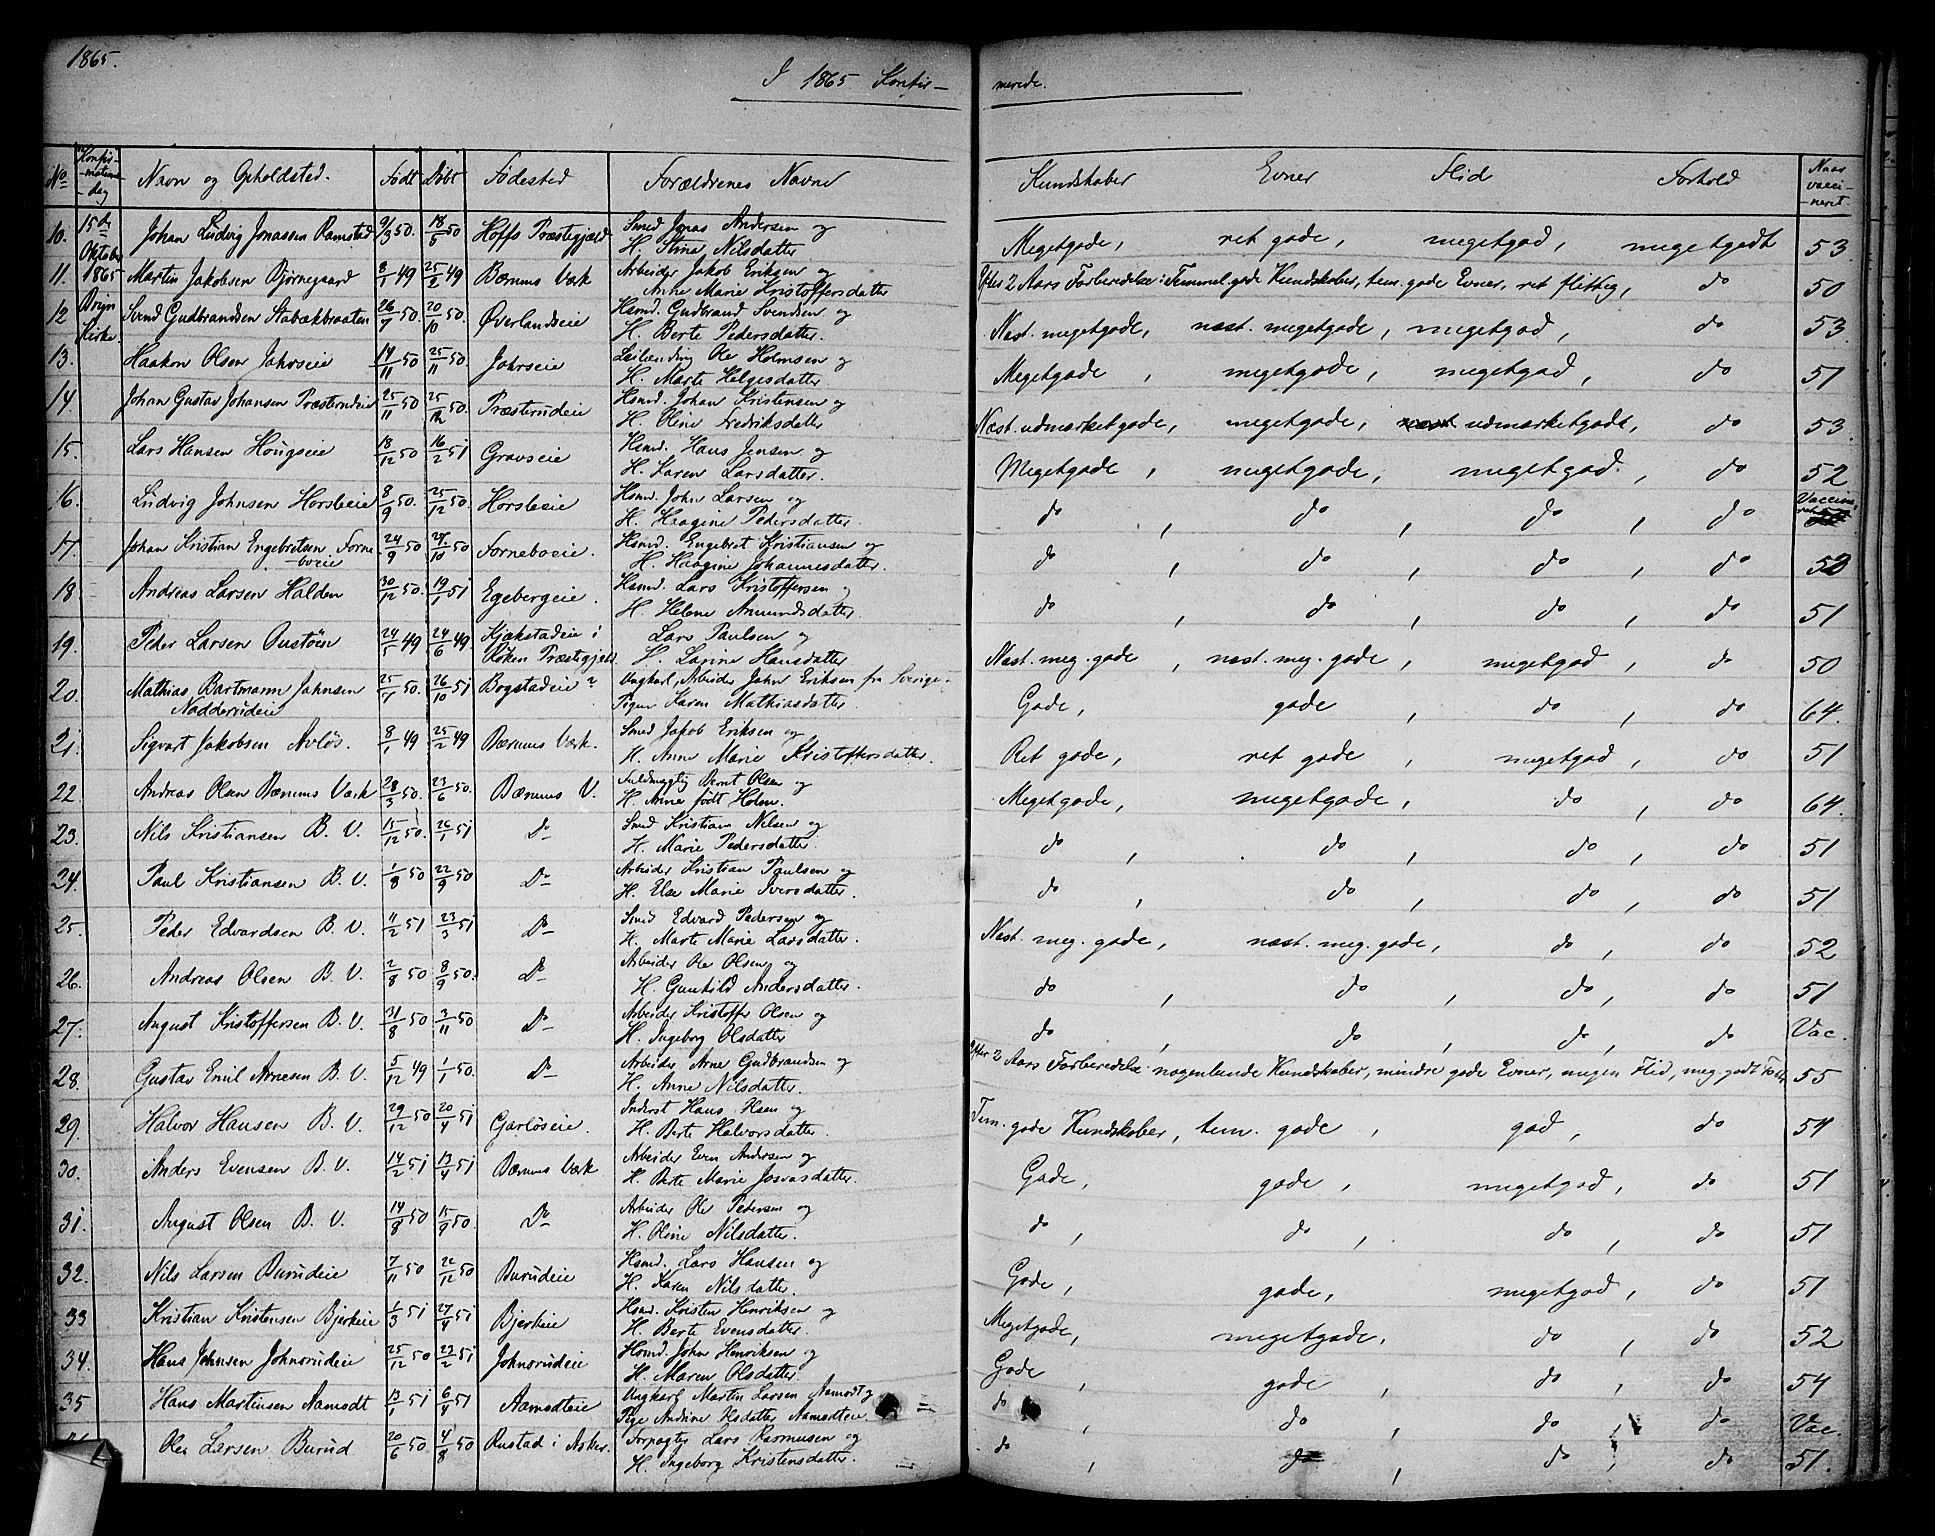 1865.
I 1865 Konfir-
merede.
No Konfir-mations-dag Navn og Opholdsted. Født Døbt Fødested Forældrenes Navne Kundskaber Evner Flid Forhold Naar vacci-neret
10. 15de Oktober 1865 Bryn Kirke Johan Ludvig Jonassen Ramstad 9/3 50. 18/5 50 Hoffs Præstegjæld Smed Jonas Andersen og H. Stina Nilsdatter Megetgode, ret gode, megetgod, megetgodt 53
11. Martin Jakobsen Bjørnegaard 8/1 49 25/2 49 Bærums Værk Arbeider Jakob Eriksen og Anne Marie Kristoffersdatter Efter 2 Aars Forberedelse: Temmel. gode Kundskaber, tem. gode Evner, ret flittig, do 50
12 Svend Gudbrandsen Stabækbraaten 26/7 50. 20/10 50. Øverlandseie Hsmd. Gudbrand Svendsen og H. Berte Pedersdatter. Næst. megetgode, næst. megetgode, megetgod, do 53
13. Haakon Olsen Jahrseie 14/11 50 25/11 50 Jahrseie Leilending Ole Holmsen og H. Marte Helgesdatter. Megetgode, megetgode, megetgod, do 51
14. Johan Gustav Johansen Præsterudeie 25/11 50 25/12 50. Præsterudeie Hsmd. Johan Kristensen og H. Oline Fredriksdatter Næst. udmærketgode, megetgode, udmærketgodt, do 53.
15. Lars Hansen Hougseie 18/12 50 16/2 51 Gravseie Hsmd. Hans Jensen og H. Karen Larsdatter. Megetgode, megetgode, megetgod, do 52
16. Ludvig Johnsen Horsleeie 8/9 50. 25/12 50 Horsleeie Hsmd. John Larsen og H. Haagine Pedersdatter. do, do, do, do Vaccine-ret
17. Johan Kristian Engebretsen Forne-boeie 24/9 50 27/10 50 Forneboeie. Hsmd. Engebret Kristiansen og H. Haagine Johannesdatter. do, do, do, do 52
18 Andreas Larsen Halden 30/12 50. 19/1 51 Egebergeie. Hsmd. Lars Kristoffersen og H. Helene Amundsdatter do, do, do, do 51
19. Peder Larsen Oustøen 24/1 49 24/6 49 Kjækstadeie i Røken Præstegjæld. Lars Paulsen og H. Larine Hansdatter Næst. meg. gode, næst. meg. gode, megetgod, do 50
20. Mathias Bartmann Jahnsen Nadderudeie 25/7 50. 26/10 51 Bogstadeie? Ungkarl, Arbeider John Eriksen fra Sverige, Pigen Karen Mathiasdatter. Gode, gode, do, do 64.
21. Sigvart Jakobsen Avløs. 8/1 49 25/2 49 Bærums Værk. Smed Jakob Eriksen og H. Anne Marie Kristoffersdatter. Ret gode, ret gode, megetgod, do 51
22 Andreas Olsen Bærums Værk 28/3 50. 23/6 50. Bærums V. Fuldmægtig Bernt Olsen og H. Anne født Holm. Megetgode, megetgode, do, do 64.
23. Nils Kristiansen B. V. 15/12 50. 26/1 51 Do Smed Kristian Nelsen og H. Marie Pedersdatter. do, do, do, do 51
24. Paul Kristiansen B. V. 1/8 50 22/9 50 Do Arbeider Kristian Paulsen og H. Else Marie Iversdatter. do, do, do, do 51
25. Peder Edvardsen B. V. 11/2 51 23/3 51 Do Smed Edvard Pedersen og H. Marte Marie Larsdatter. Næst. meg. gode, næst. meg. gode, do, do 52
26. Andreas Olsen B. V. 2/8 50 8/9 50. Do Arbeider Ole Olsen og H. Gunhild Andersdatter. do, do, do, do 51
27. August Kristoffersen B. V. 31/8 50 3/11 50 Do Arbeider Kristoffer Olsen og H. Ingeborg Olsdatter do, do, do, do Vac.
28. Gustav Emil Arnesen B. V. 5/12 49 1/1 50. Do Arbeider Arne Gudbrandsen og H. Anne Nilsdatter. Efter 2 Aars Forberedelse: nogenlunde Kundskaber, mindre gode Evner, megen Flid, meg. godt Forh. 55
29. Halvor Hansen B. V. 29/12 50 20/4 51 Garløseie. Inderst Hans Olsen og H. Berte Halvorsdatter. Tem. gode Kundskaber, tem. gode, god, do 54
30. Anders Evensen B. V. 14/2 51 13/4 51 Bærums Værk Arbeider Even Andersen og H. Berte Marie Josvasdatter. Gode, gode, megetgod, do 51
31. August Olsen B. V. 14/8 50 15/9 50. Do Arbeider Ole Pedersen og H. Oline Nilsdatter. do, do, do, do 51
32. Nils Larsen Burudeie 7/11 50 22/12 50 Burudeie Hsmd. Lars Hansen og H. Karen Nilsdatter. Gode, gode, megetgod, do 51
33 Kristian Kristensen Bjerkeie 1/3 51 27/4 51 Bjerkeie Hsmd. Kristen Henriksen og H. Berte Evensdatter. Megetgode, megetgode, do, do 52
34. Hans Johnsen Johnsrudeie 25/12 50 23/2 51 Johnsrudeie Hsmd. John Henriksen og H. Maren Olsdatter. Gode, gode, do, do 54
35 Hans Martinsen Aamodt 13/1 51 6/4 51 Aamodteie Ungkarl Martin Larsen Aamodt og Pige Andrine Olsdatter Aamodteie do, do, do, do Vac.
Ole Larsen Burud 20/6 50 4/8 50 Rustad i Asker. Forpagter Lars Rasmusen og H. Ingeborg Kristensdatter. do, do, do, do 51.